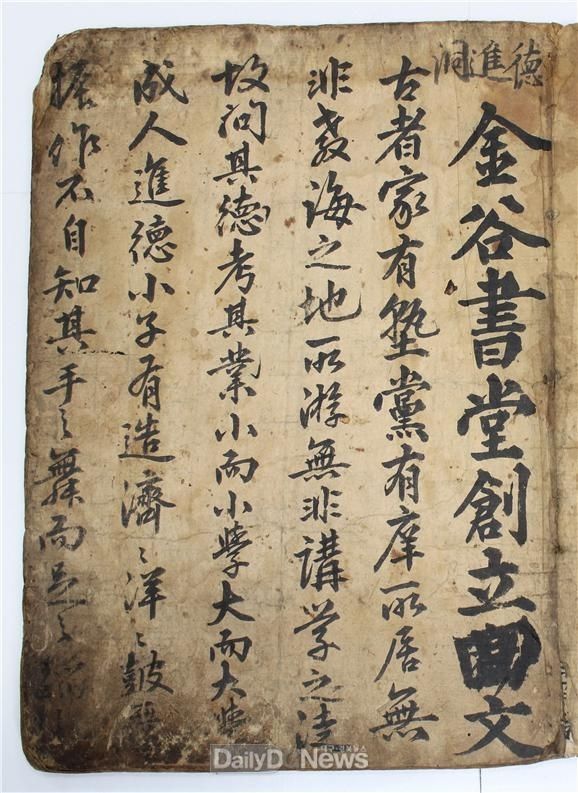 德進洞
金谷書堂創立文
古者家有塾黨有庠所居無
非敎誨之地所游無非講学之
故问其德考其業小而小學大而大
成人進德小子有造濟〻洋〻皷
振作不自知其手之舞而足之
DailyD News